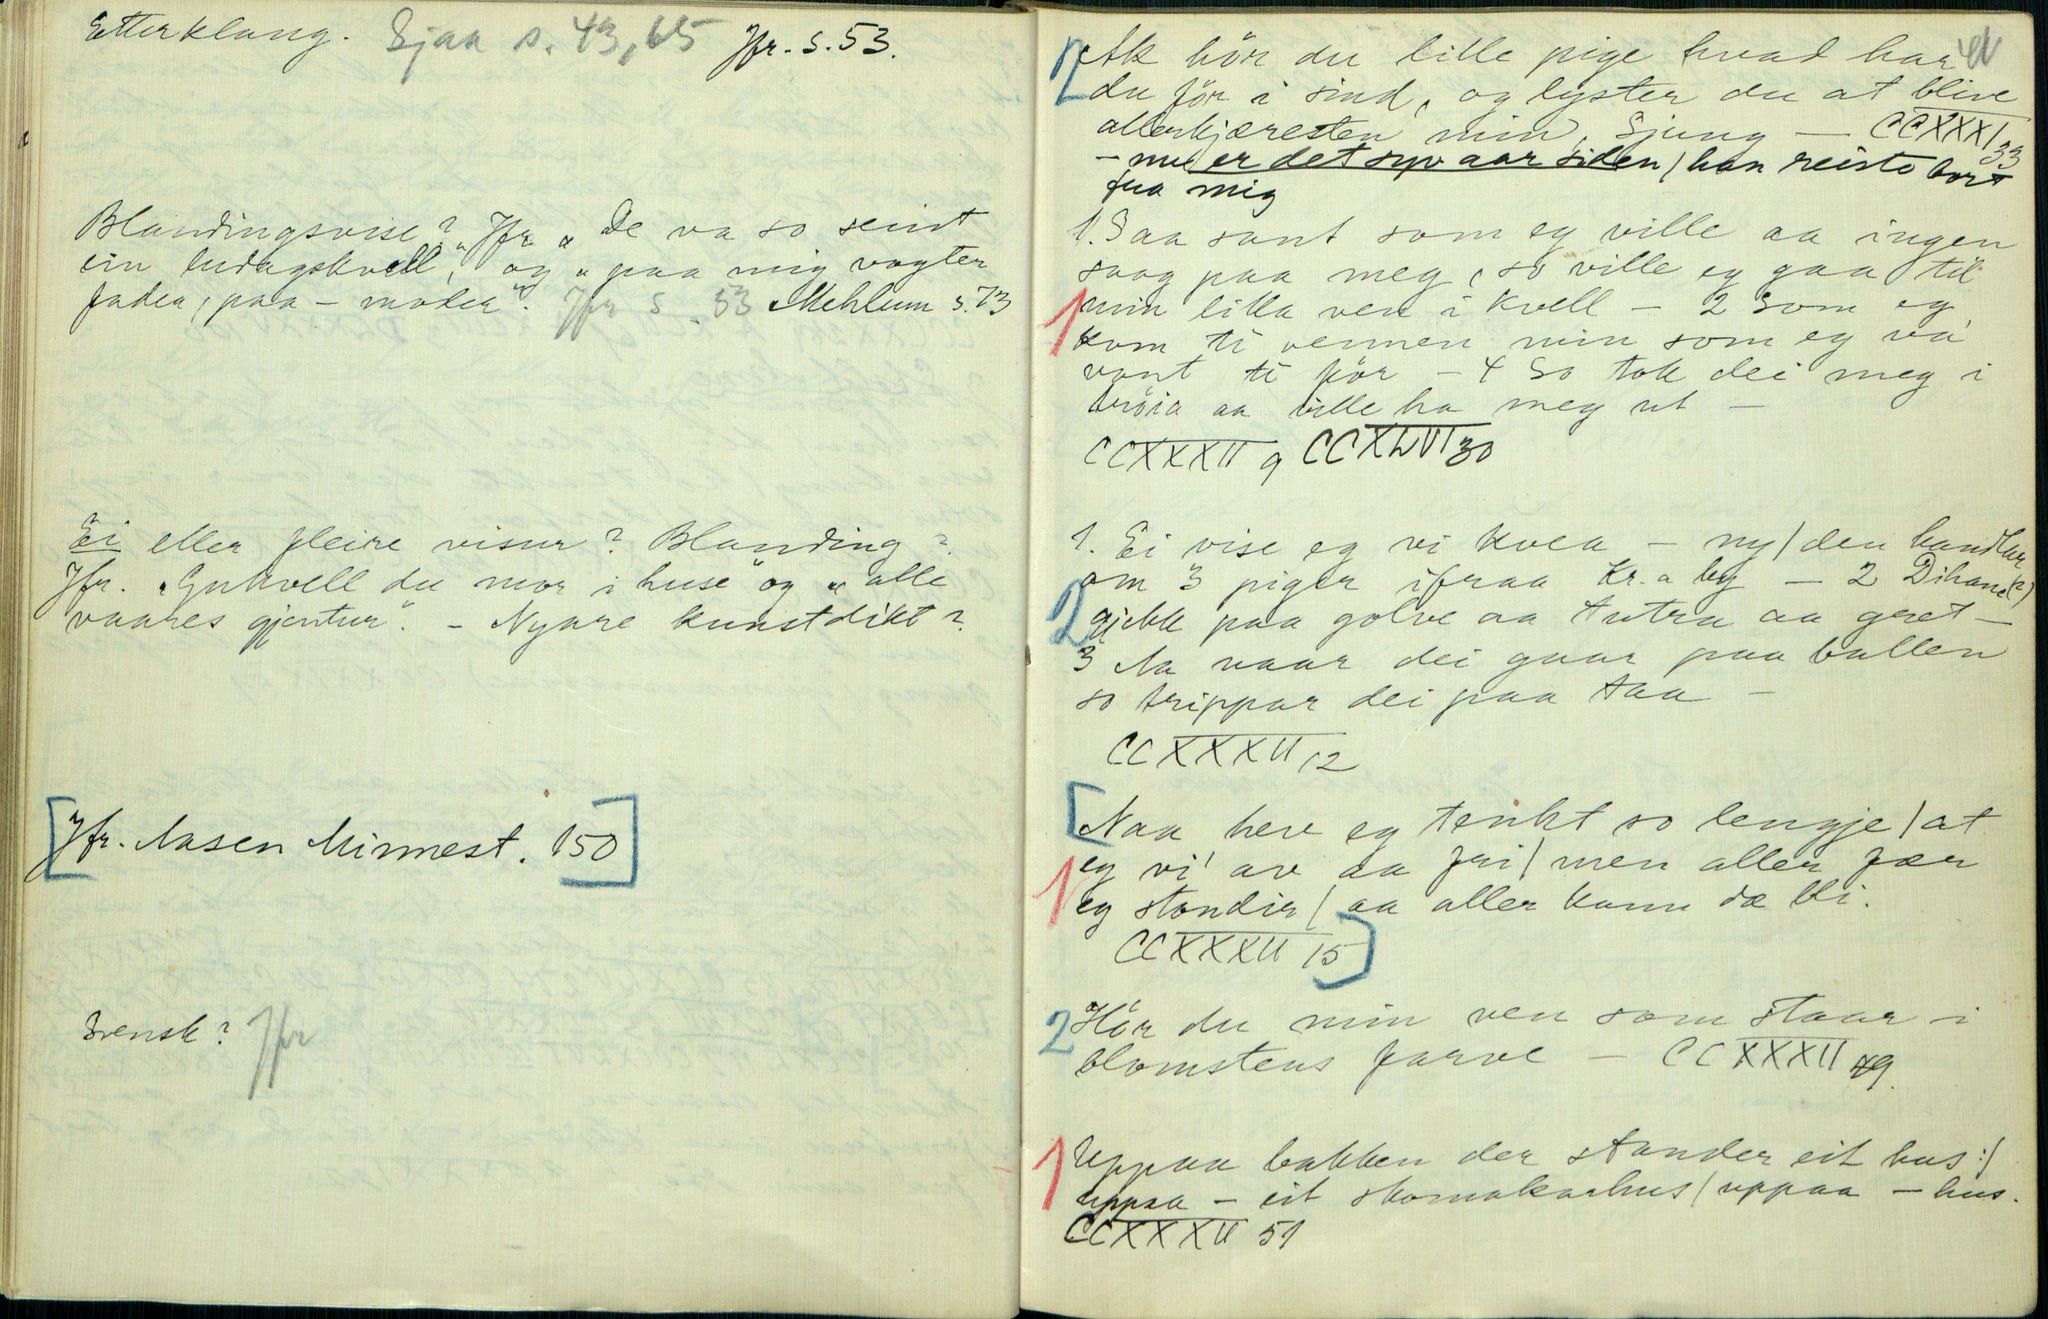 Etterklang. Sjaa s. 43, 65 Jfr. s. 53.
Blandingsvise? Jfr. „De va so seint
ein laudagskvell", og „paa mig vogter
fader, paa – moder". Jfr s. 53 Mehlum s. 73
Ei eller fleire visur? Blanding?
Jfr. „Gukvell du mor i huse" og „alle
vaares gjentur". – Nyare kunstdikt?
[Jfr. Aasen Minnest. 150]
Svensk? Jfr
2 Ak hör du lille pige hvad har
du för i sind, og lyster du at blive
allerkjæresten min, Sjung — CCXXXI 33
– nu er det syv aar siden / han reiste bort
fra mig
1. Saa sant som eg ville aa ingen
saag paa meg, so ville eg gaa til
1 min lilla ven i kvell – 2 Som eg
kom ti vennen min som eg va
vant ti för – 4 So tok dei meg i
tröia aa ville ha meg ut –
CCXXXII 9 CCXLVI 30
1. Ei vise eg vi kvea – ny / den handlar
om 3 piger ifraa Kr.a by – 2 Dihane(?)
2 gjekk paa golve aa tutra aa gret –
3 Aa naar dei gaar paa ballen
so trippar dei paa taa –
CCXXXII 12
[Naa heve eg tenkt so lengje / at
1 eg vi' av aa fri / men aller fær
eg stondir / aa aller kann dæ bli.
CCXXXII 15]
2 Hör du min ven som staar i
blomstens farve – CCXXXII 49.
1 Uppaa bakken der stander eit hus :/
uppaa – eit skomakarhus / uppaa – hus.
CCXXXII 51